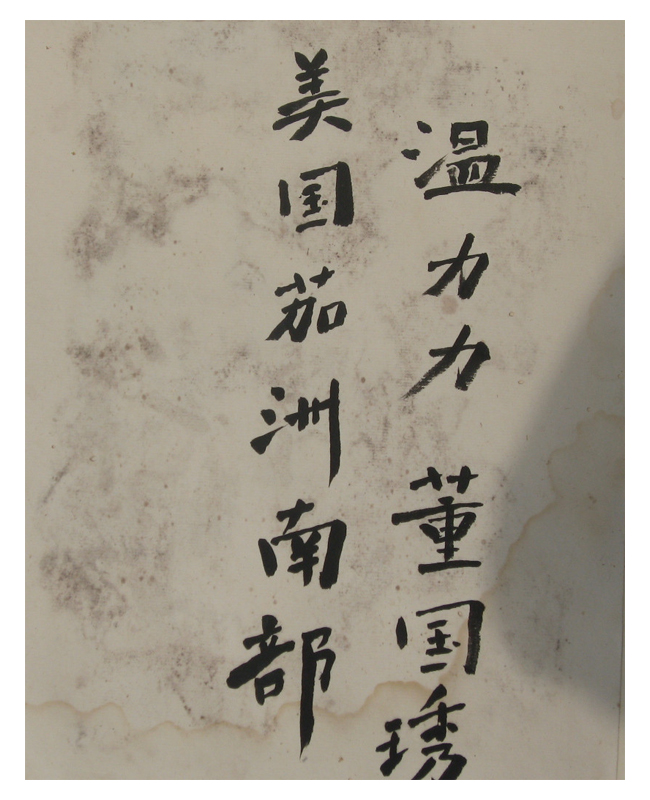 温力力 董国琇
美国茄洲南部